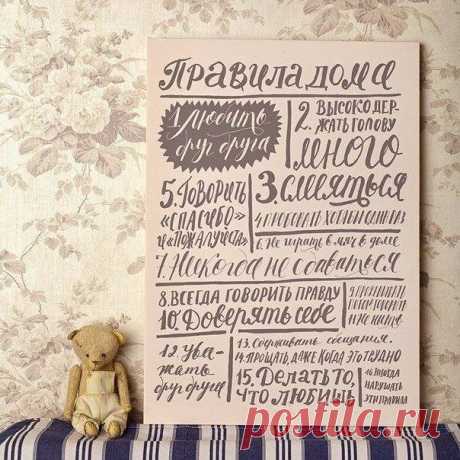 Правила дома
1. Любить
друг друга
2. ВЫСОКО ДЕР-
ЖАТЬ ГОЛОВУ
много
3. смеяться
4. ПРОБОВАТЬ ХОТЯ БЫ ОДИН РАЗ
5. ГОВОРИТЬ
«СПАСИБО»
И «ПОЖАЛУЙСТА»
6. Не играть в мяч в доме
7. Никогда не сдаваться
8. ВСЕГДА ГОВОРИТЬ ПРАВДУ
9.
10. Доверять себе
12. Ува-
жать
друг друга
13. Сдерживать обещания.
14. ПРОЩАТЬ, ДАЖЕ КОГДА ЭТО ТРУДНО
15. Делать то,
ЧТО ЛЮБИШЬ
16. ИНОГДА
НАРУШАТЬ
ЭТИ ПРАВИЛА
Postila.ru